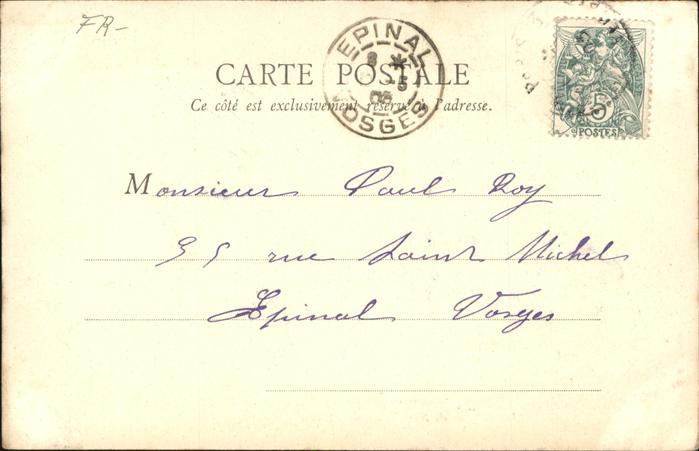 FR-
EPINAL
8 * 5
03
VOSGES
5
POSTES
CARTE POSTALE
Ce côté est exclusivement réservé à l'adresse.
Monsieur Paul Roy
35 rue Saint Michel
Epinal Vosges